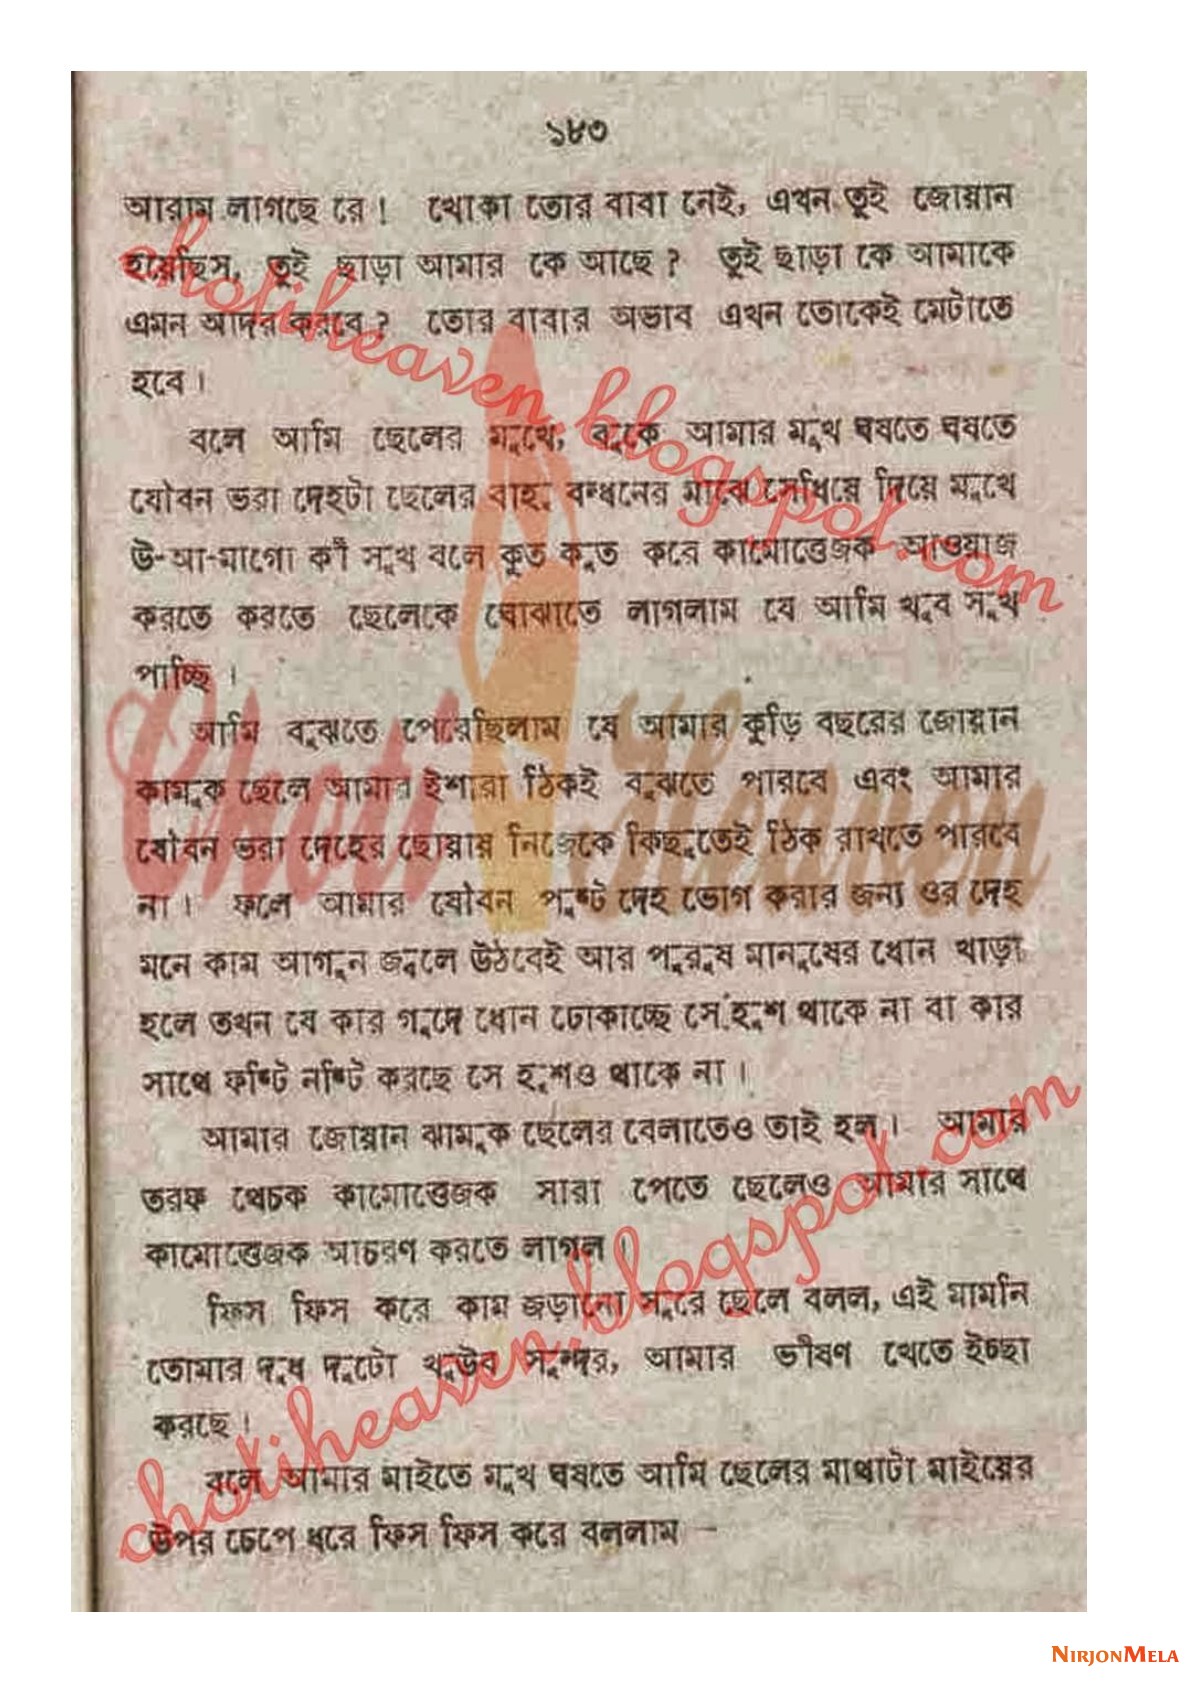 ১৮৩
আরাম লাগছে রে! খোকা তোর বাবা নেই, এখন তুই জোয়ান
হয়েছিস, তুই ছাড়া আমার কে আছে? তুই ছাড়া কে আমাকে
এমন আদর করবে? তোর বাবার অভাব এখন তোকেই মেটাতে
হবে।
বলে আমি ছেলের মুখে, বুকে আমার মুখ ঘষতে ঘষতে
যৌবন ভরা দেহটা ছেলের বাহু বন্ধনের মাঝে সেধিয়ে দিয়ে মুখে
উ-আ-মাগো কী সুখ বলে কুত কুত করে কামোত্তেজক আওয়াজ
করতে করতে ছেলেকে বোঝাতে লাগলাম যে আমি খুব সুখ
পাচ্ছি।
আমি বুঝতে পেরেছিলাম যে আমার কুড়ি বছরের জোয়ান
কামুক ছেলে আমার ইশারা ঠিকই বুঝতে পারবে এবং আমার
যৌবন ভরা দেহের ছোয়ায় নিজেকে কিছুতেই ঠিক রাখতে পারবে
না। ফলে আমার যৌবন পুষ্ট দেহ ভোগ করার জন্য ওর দেহ
মনে কাম আগুন জ্বলে উঠবেই আর পুরুষ মানুষের ধোন খাড়া
হলে তখন যে কার গুদে ধোন ঢোকাচ্ছে সে হুশ থাকে না বা কার
সাথে ফষ্টি নষ্টি করছে সে হুশও থাকে না।
আমার জোয়ান ঝামুক ছেলের বেলাতেও তাই হল। আমার
তরফ থেচক কামোত্তেজক সারা পেতে ছেলেও আমার সাথে
কামোত্তেজক আচরণ করতে লাগল।
ফিস ফিস করে কাম জড়ানো সুরে ছেলে বলল, এই মামনি
তোমার দুধ দুটো খুউব সুন্দর, আমার ভীষণ খেতে ইচ্ছা
করছে।
বলে আমার মাইতে মুখ ঘষতে আমি ছেলের মাথাটা মাইয়ের
উপর চেপে ধরে ফিস ফিস করে বললাম —
chotiheaven.blogspot.com
Choti Heaven
chotiheaven.blogspot.com
NIRJONMELA